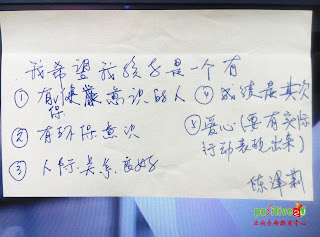 我希望我孩子是一个有
① 有保健意识的人
② 有环保意识
③ 人际关系良好
④ 成绩是其次
⑤ 爱心(要有实际
行动表现出来)
陈泽莉
positive